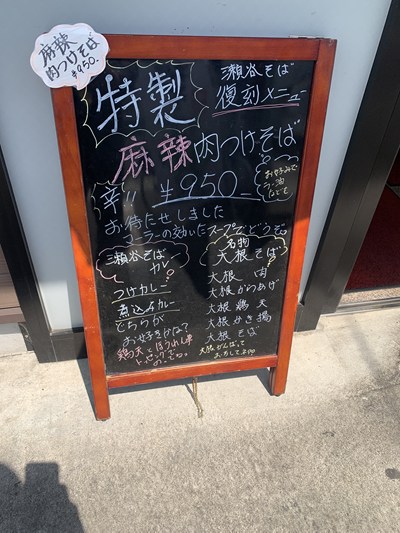 麻辣
肉つけそば
¥950-
特製
瀬谷そば
復刻メニュー
麻辣肉つけそば
辛!! ¥950-
お好みで
ラー油
お待たせしました
コーラーの効いたスープでどうぞ
瀬谷そば
カレー
つけカレー
煮込みカレー
どちらが
お好きかな?
鶏天とほうれん草
トッピングで
名物
大根そば
大根 肉
大根からあげ
大根 鶏天
大根かき揚
大根 そば
大根がんばって
おろしてます